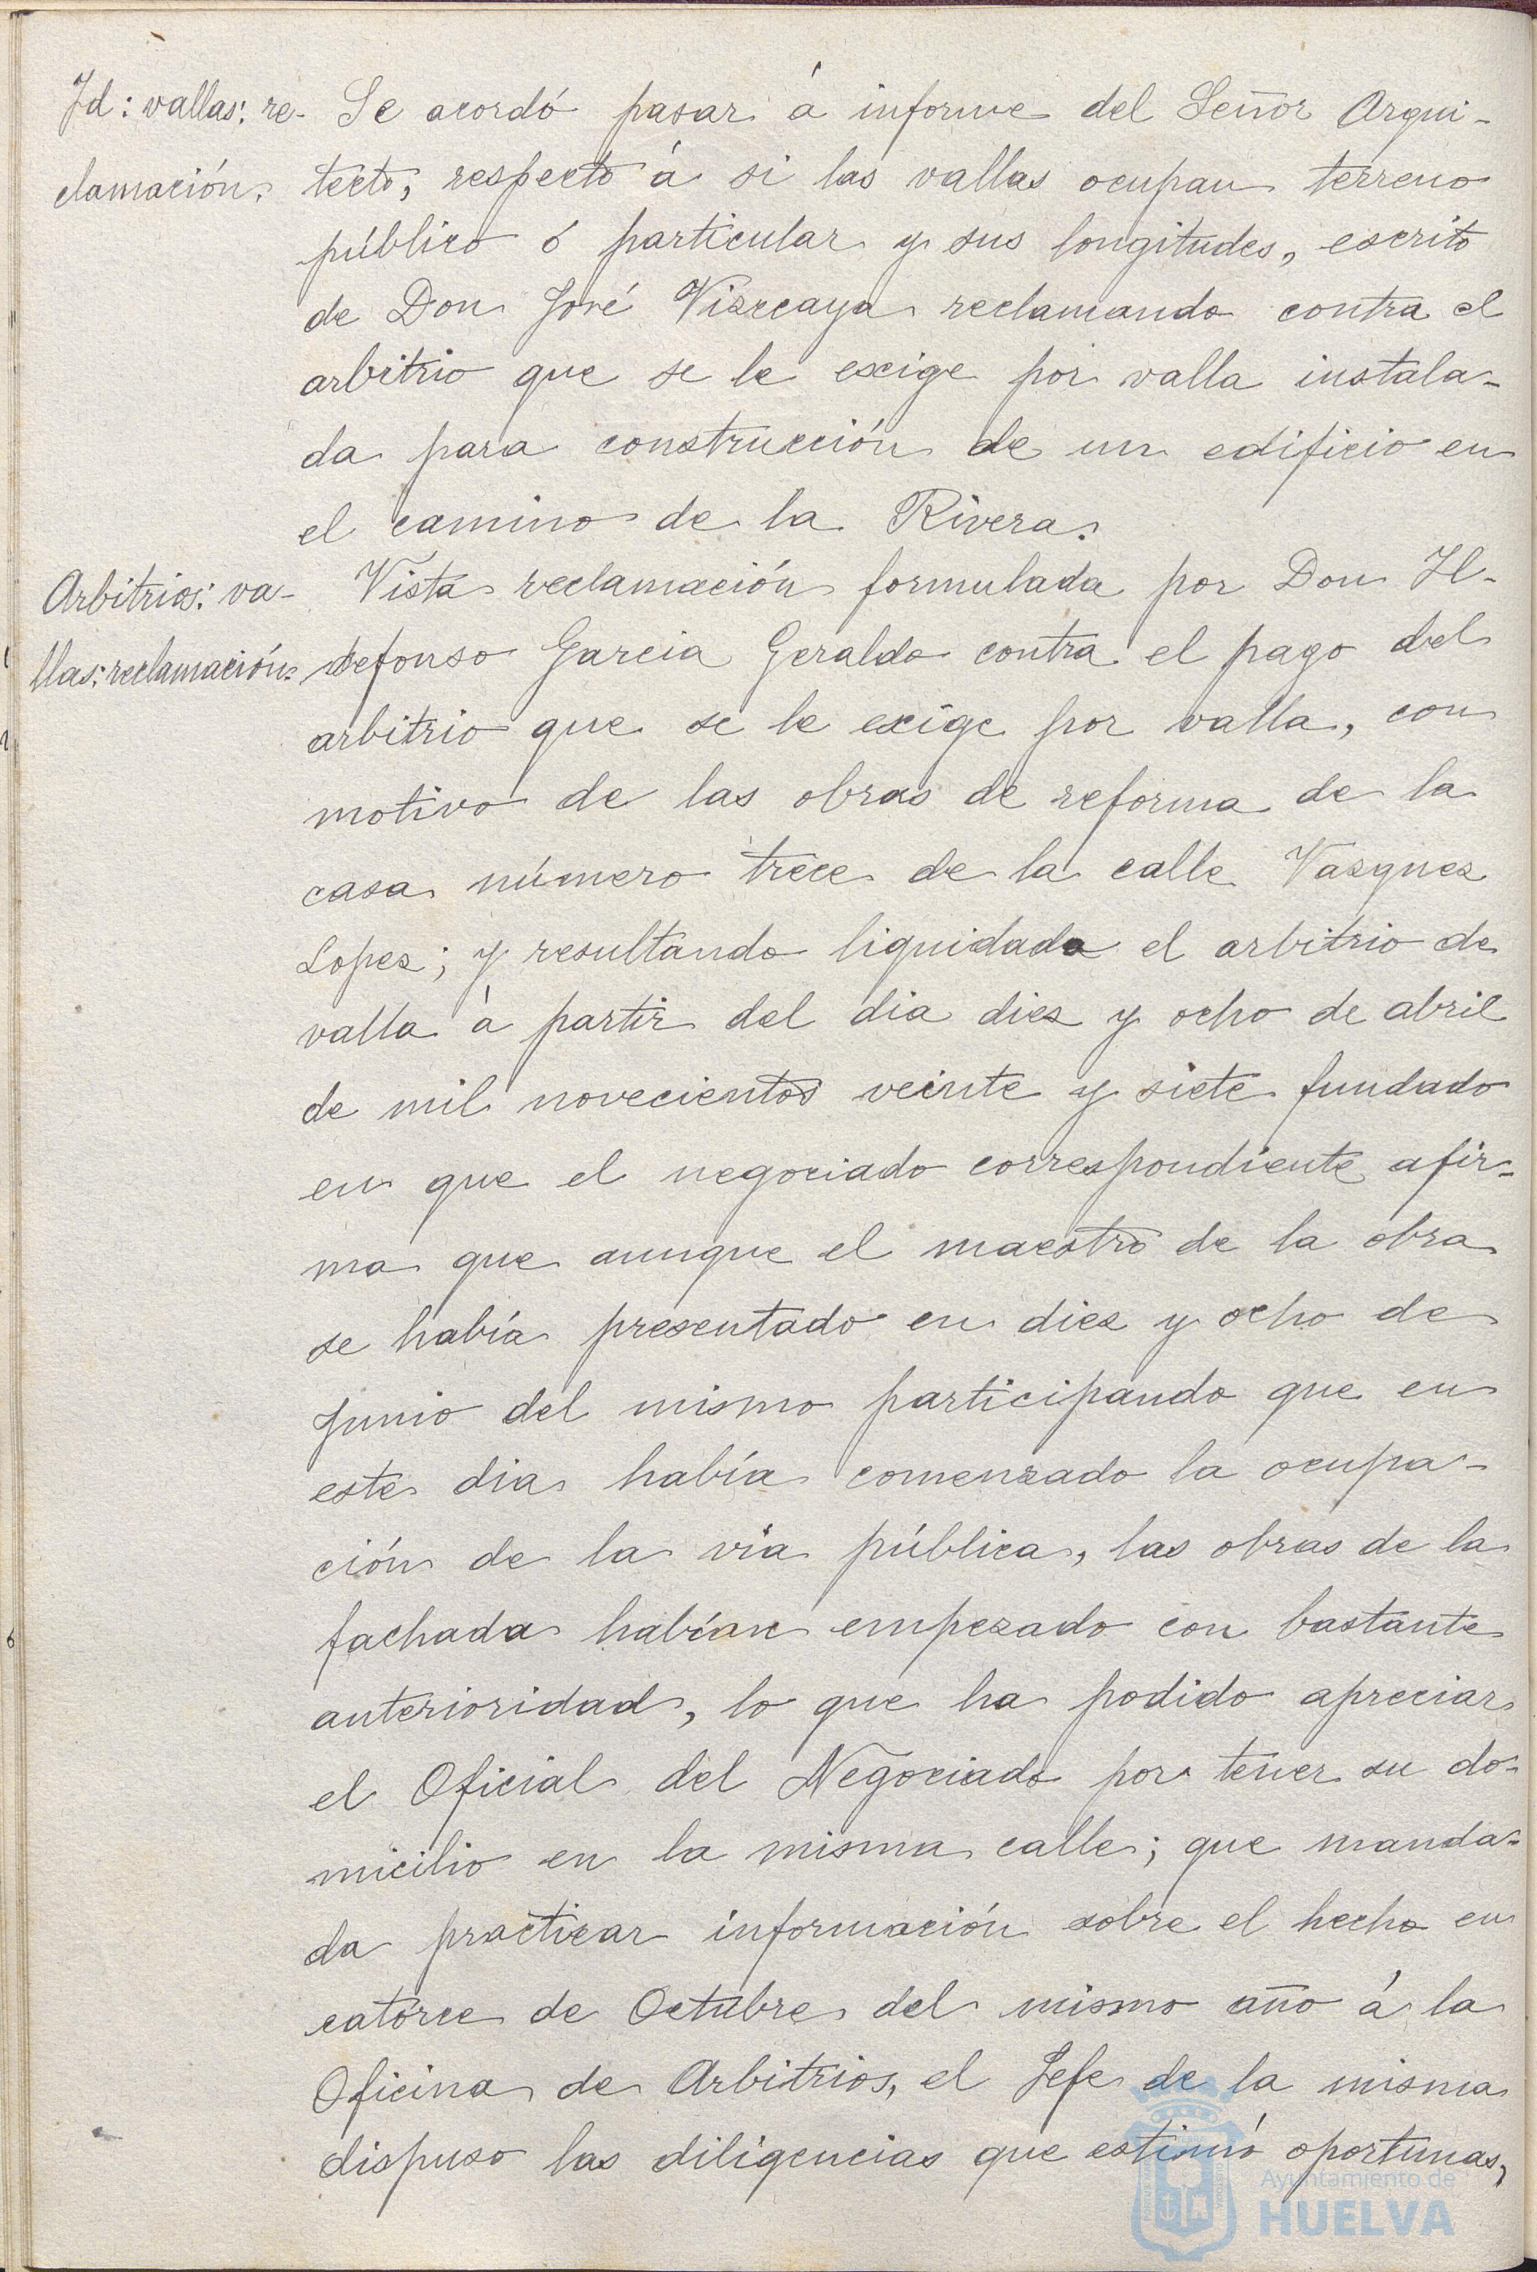 Id: vallas: re-
clamación.
Se acordó pasar á informe del Señor Arqui-
tecto, respecto á si las vallas ocupan terreno
público ó particular y sus longitudes, escrito
de Don José Vizcaya reclamando contra el
arbitrio que se le exige por valla instala-
da para construcción de un edificio en
el camino de la Rivera.
Arbitrios: va-
llas: reclamación.
Vista reclamación formulada por Don Il-
defonso Garcia Geraldo contra el pago del
arbitrio que se le exige por valla, con
motivo de las obras de reforma de la
casa número trece de la calle Vazquez
Lopez; y resultando liquidado el arbitrio de
valla á partir del dia diez y ocho de abril
de mil novecientos veinte y siete fundado
en que el negociado correspondiente afir-
ma que aunque el maestro de la obra
se había presentado en diez y ocho de
Junio del mismo participando que en
este dia había comenzado la ocupa-
ción de la vía pública, las obras de la
fachada habían empezado con bastante
anterioridad, lo que ha podido apreciar
el Oficial del Negociado por tener su do-
micilio en la misma calle; que manda-
da practicar información sobre el hecho en
catorce de Octubre del mismo año á la
Oficina de Arbitrios, el Jefe de la misma
dispuso las diligencias que estimó oportunas,
Ayuntamiento de
HUELVA